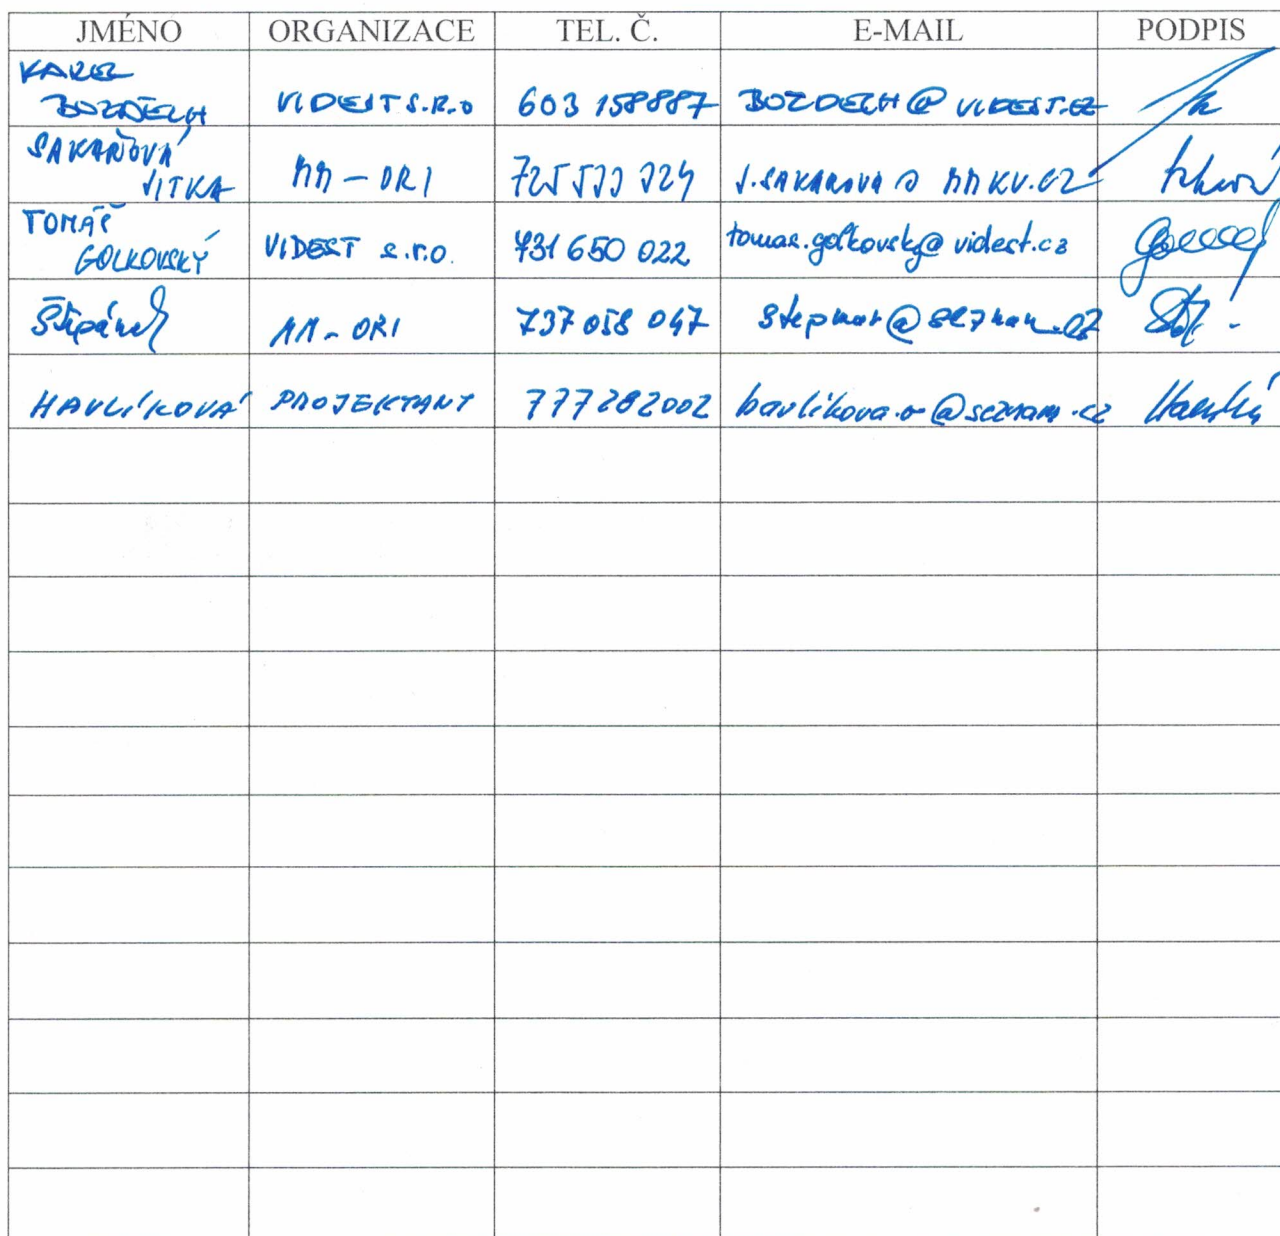 JMÉNO ORGANIZACE TEL. Č. E-MAIL PODPIS
KAREL
BOZDĚCH VIDEST S.R.O 603 158887 BOZDECH@VIDEST.CZ
SAKAŇOVÁ
JITKA MM - ORI J.SAKANOVA@MMKV.CZ
TOMÁŠ
GOLKOVSKÝ VIDEST s.r.o. 731 650 022 tomas.golkovsky@videst.cz
Štěpánek MM - ORI 737 058 047
HAVLÍKOVÁ PROJEKTANT 777282002